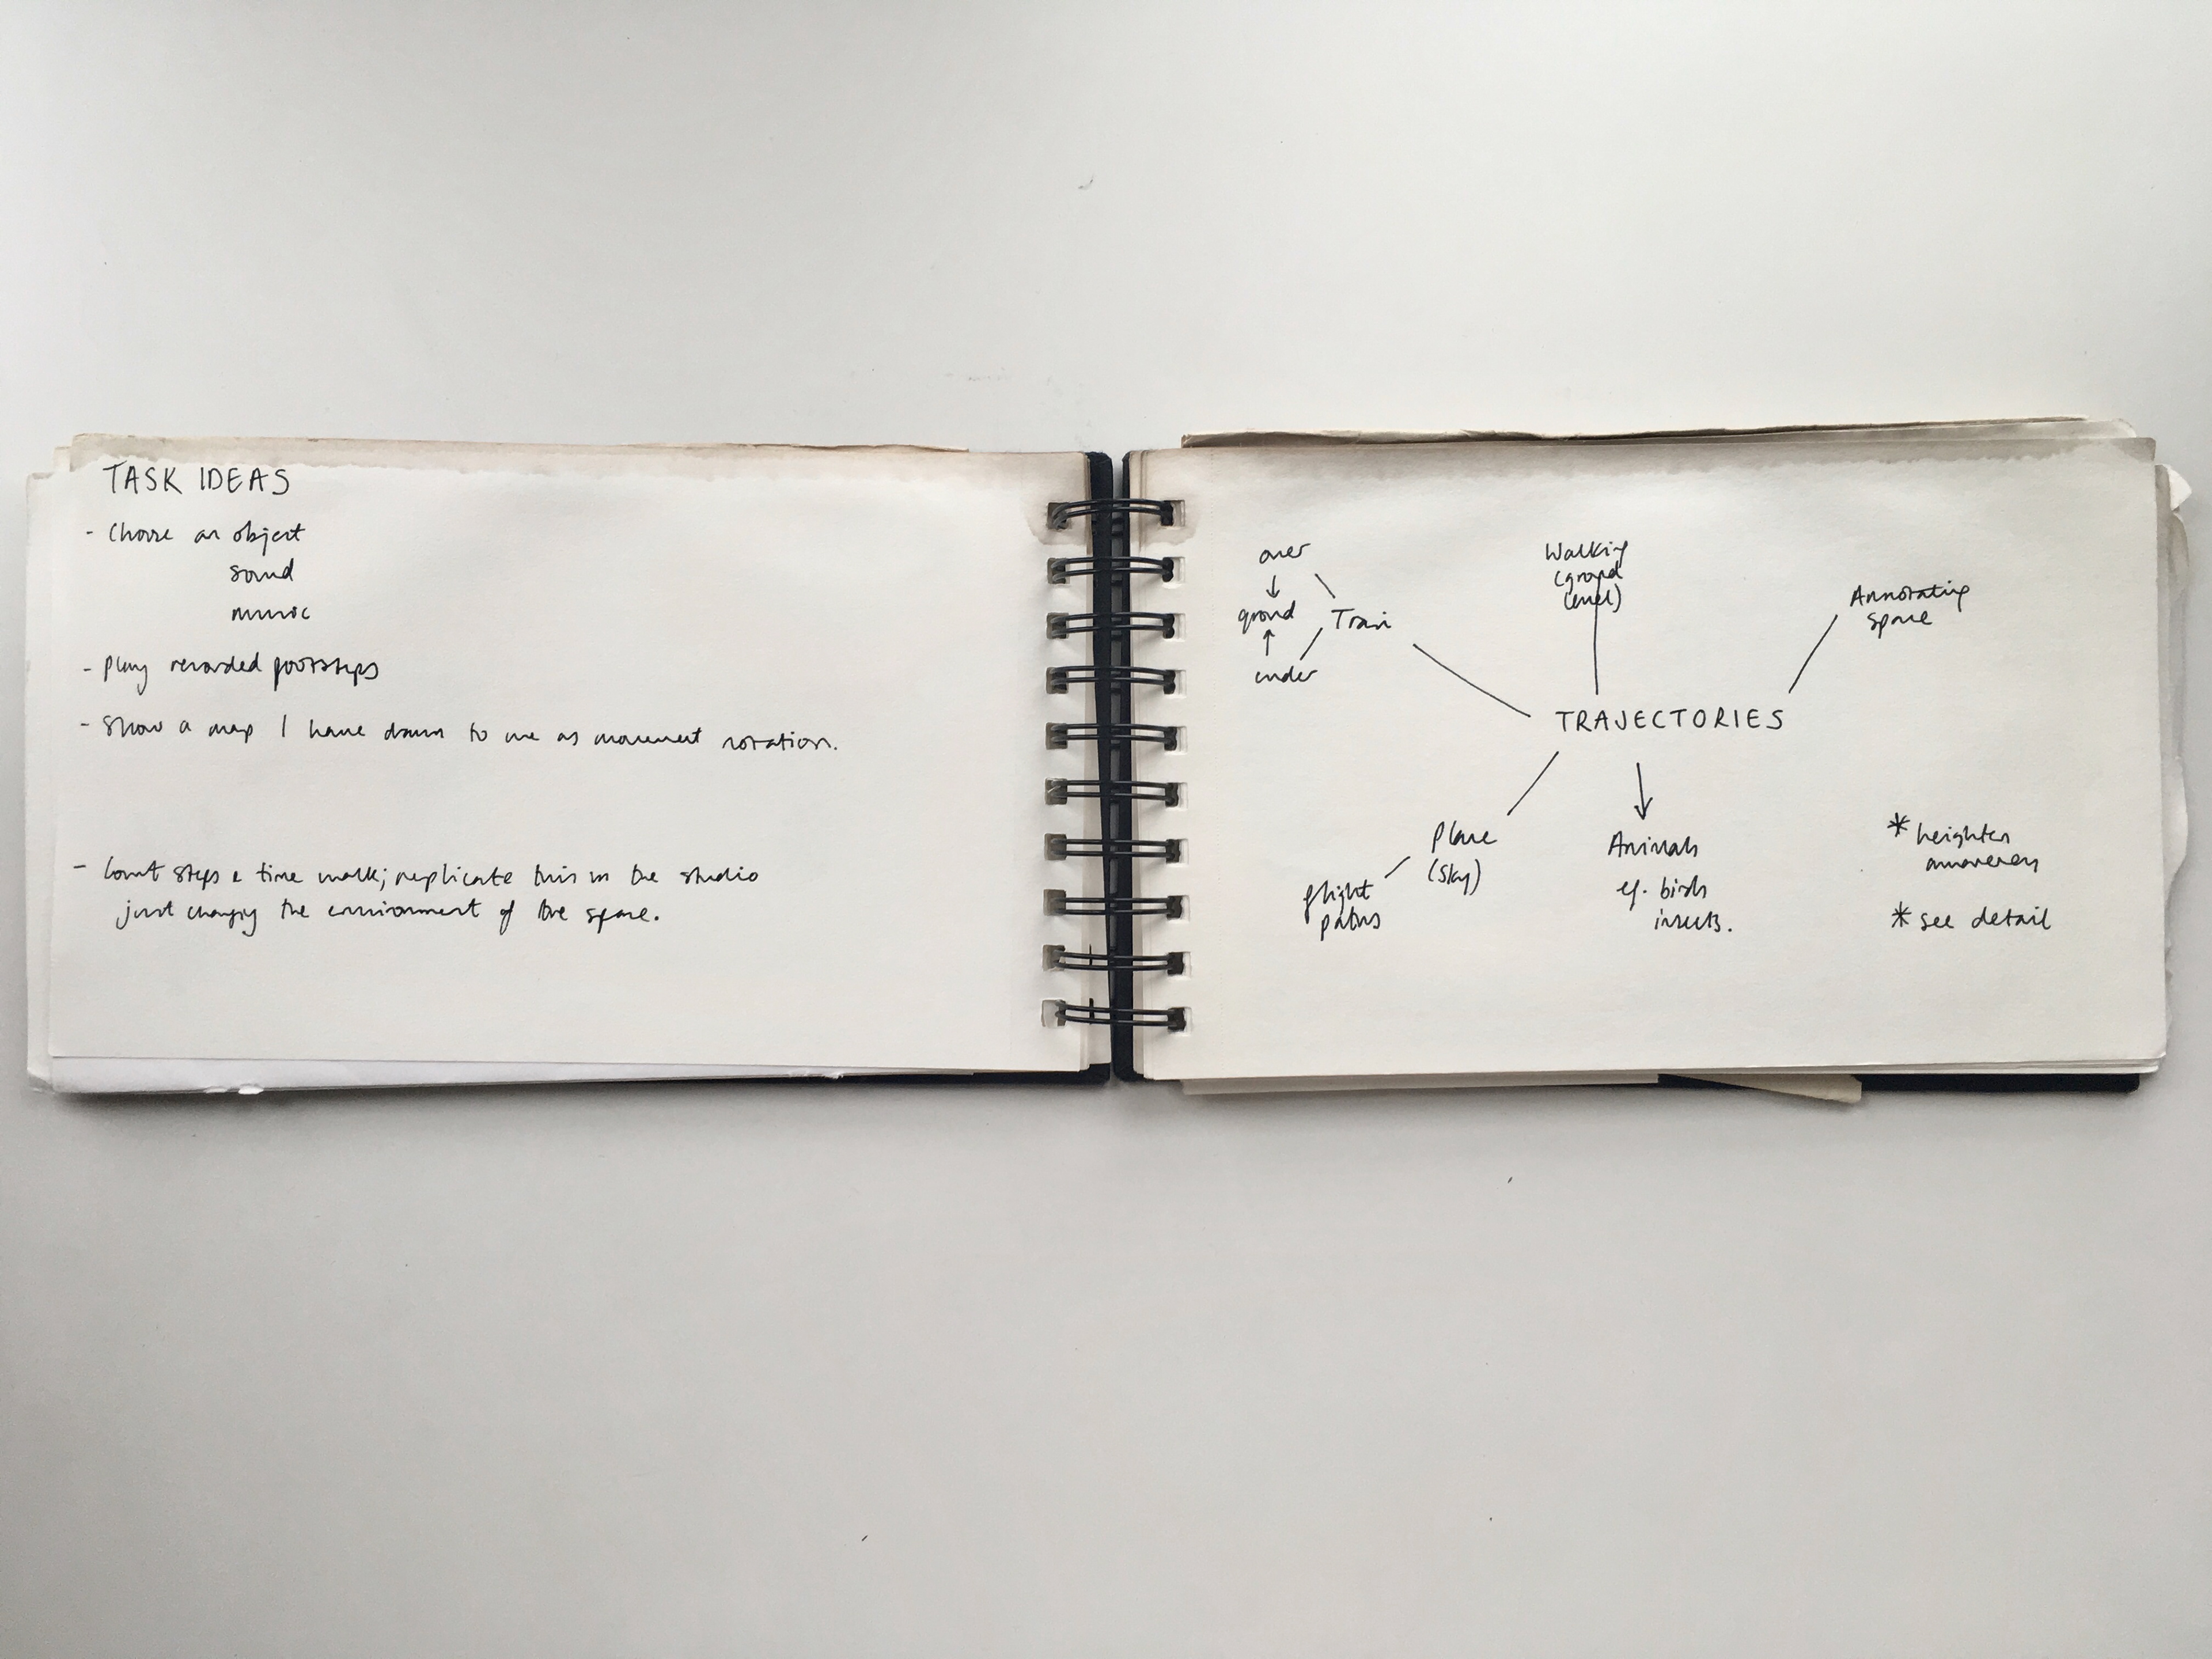 TASK IDEAS
- Choose an object
sound
music
- Play recorded footsteps
- Show a map I have drawn to use as movement notation.
- Count steps & time walk; replicate this in the studio
just changing the environment of the space.
over
ground
under
Train
Walking
(ground
level)
Annotating
space
TRAJECTORIES
Plane
(sky)
flight
paths
Animals
eg. birds
insects.
* heighten
awareness
* see detail